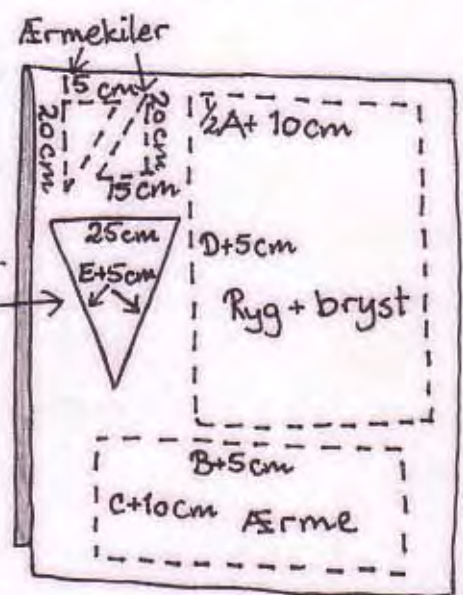 Ærmekiler
15 cm
20cm
20cm
15cm
½A+ 10cm
25cm
E+5cm
D+5cm
Ryg + bryst
B+5cm
C+10cm
Ærme